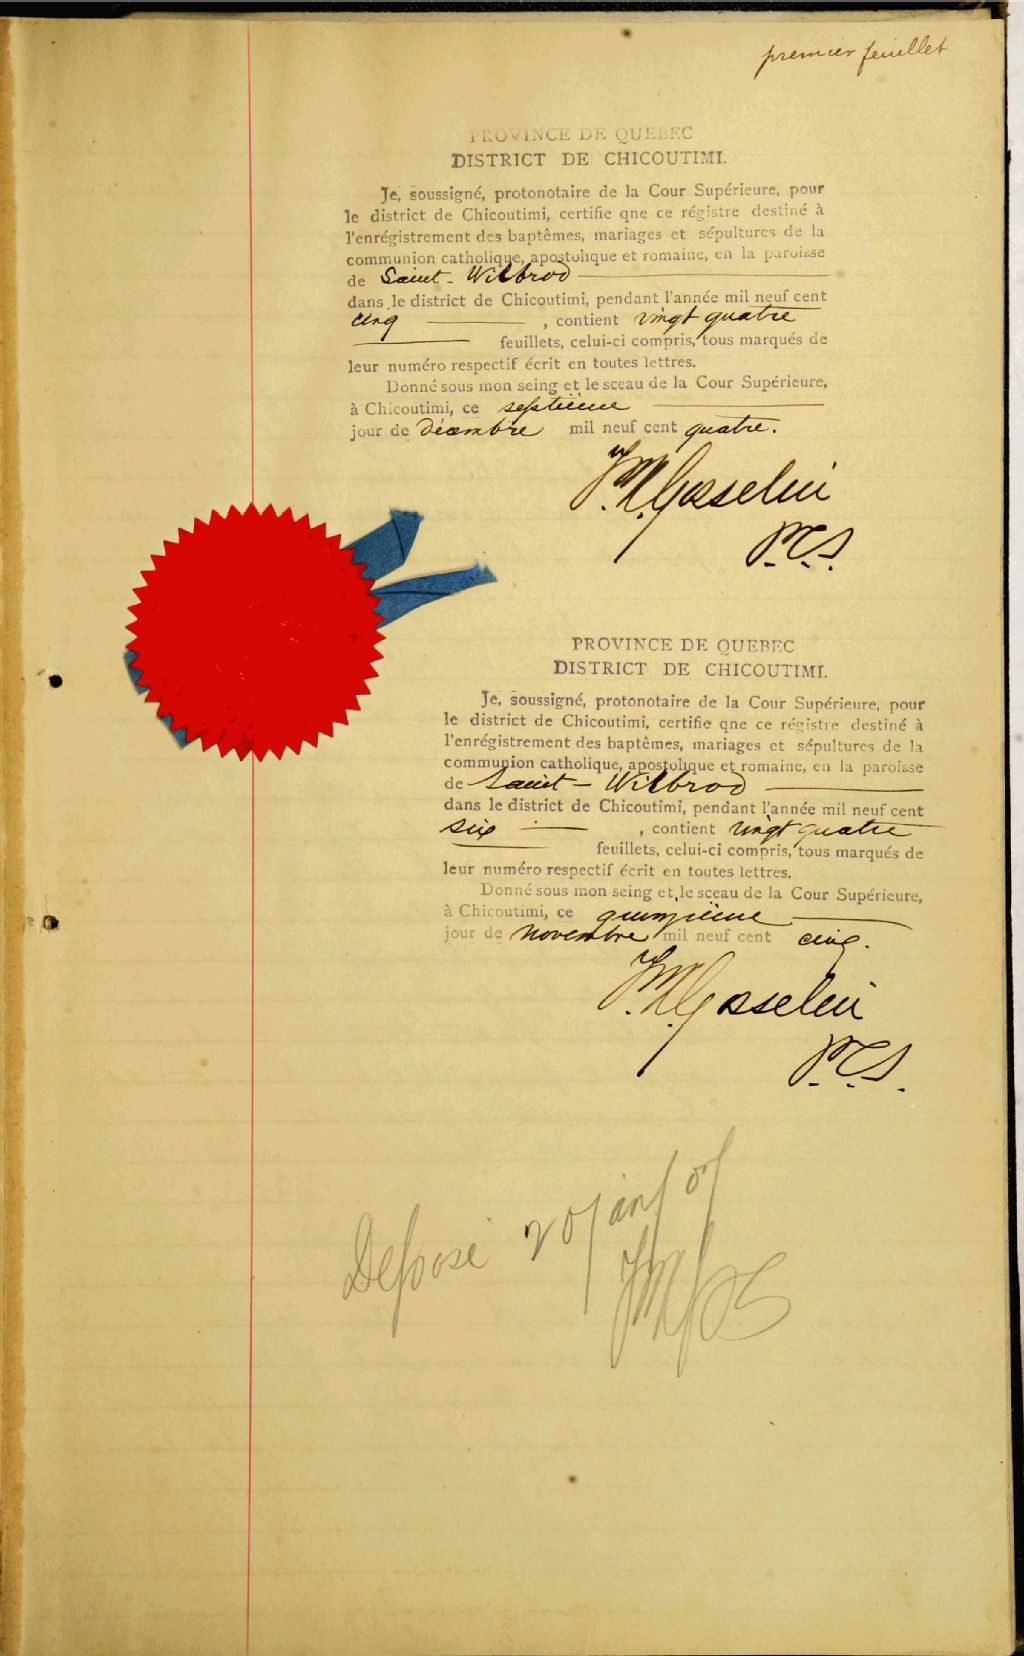 premier feuillet
PROVINCE DE QUEBEC
DISTRICT DE CHICOUTIMI.
Je, soussigné, protonotaire de la Cour Supérieure, pour
le district de Chicoutimi, certifie qne ce régistre destiné à
l'enrégistrement des baptêmes, mariages et sépultures de la
communion catholique, apostolique et romaine, en la paroisse
de Saint-Wilbrod
dans le district de Chicoutimi, pendant l'année mil neuf cent
cinq , contient vingt quatre
feuillets, celui-ci compris, tous marqués de
leur numéro respectif écrit en toutes lettres.
Donné sous mon seing et le sceau de la Cour Supérieure,
à Chicoutimi, ce septième
jour de décembre mil neuf cent quatre.
Gosselin
P.C.S.
PROVINCE DE QUEBEC
DISTRICT DE CHICOUTIMI.
Je, soussigné, protonotaire de la Cour Supérieure, pour
le district de Chicoutimi, certifie qne ce régistre destiné à
l'enrégistrement des baptêmes, mariages et sépultures de la
communion catholique, apostolique et romaine, en la paroisse
de Saint-Wilbrod
dans le district de Chicoutimi, pendant l'année mil neuf cent
six , contient vingt quatre
feuillets, celui-ci compris, tous marqués de
leur numéro respectif écrit en toutes lettres.
Donné sous mon seing et le sceau de la Cour Supérieure,
à Chicoutimi, ce quinzième
jour de novembre mil neuf cent cinq.
Gosselin
P.C.S.
Déposé 20 janv 07